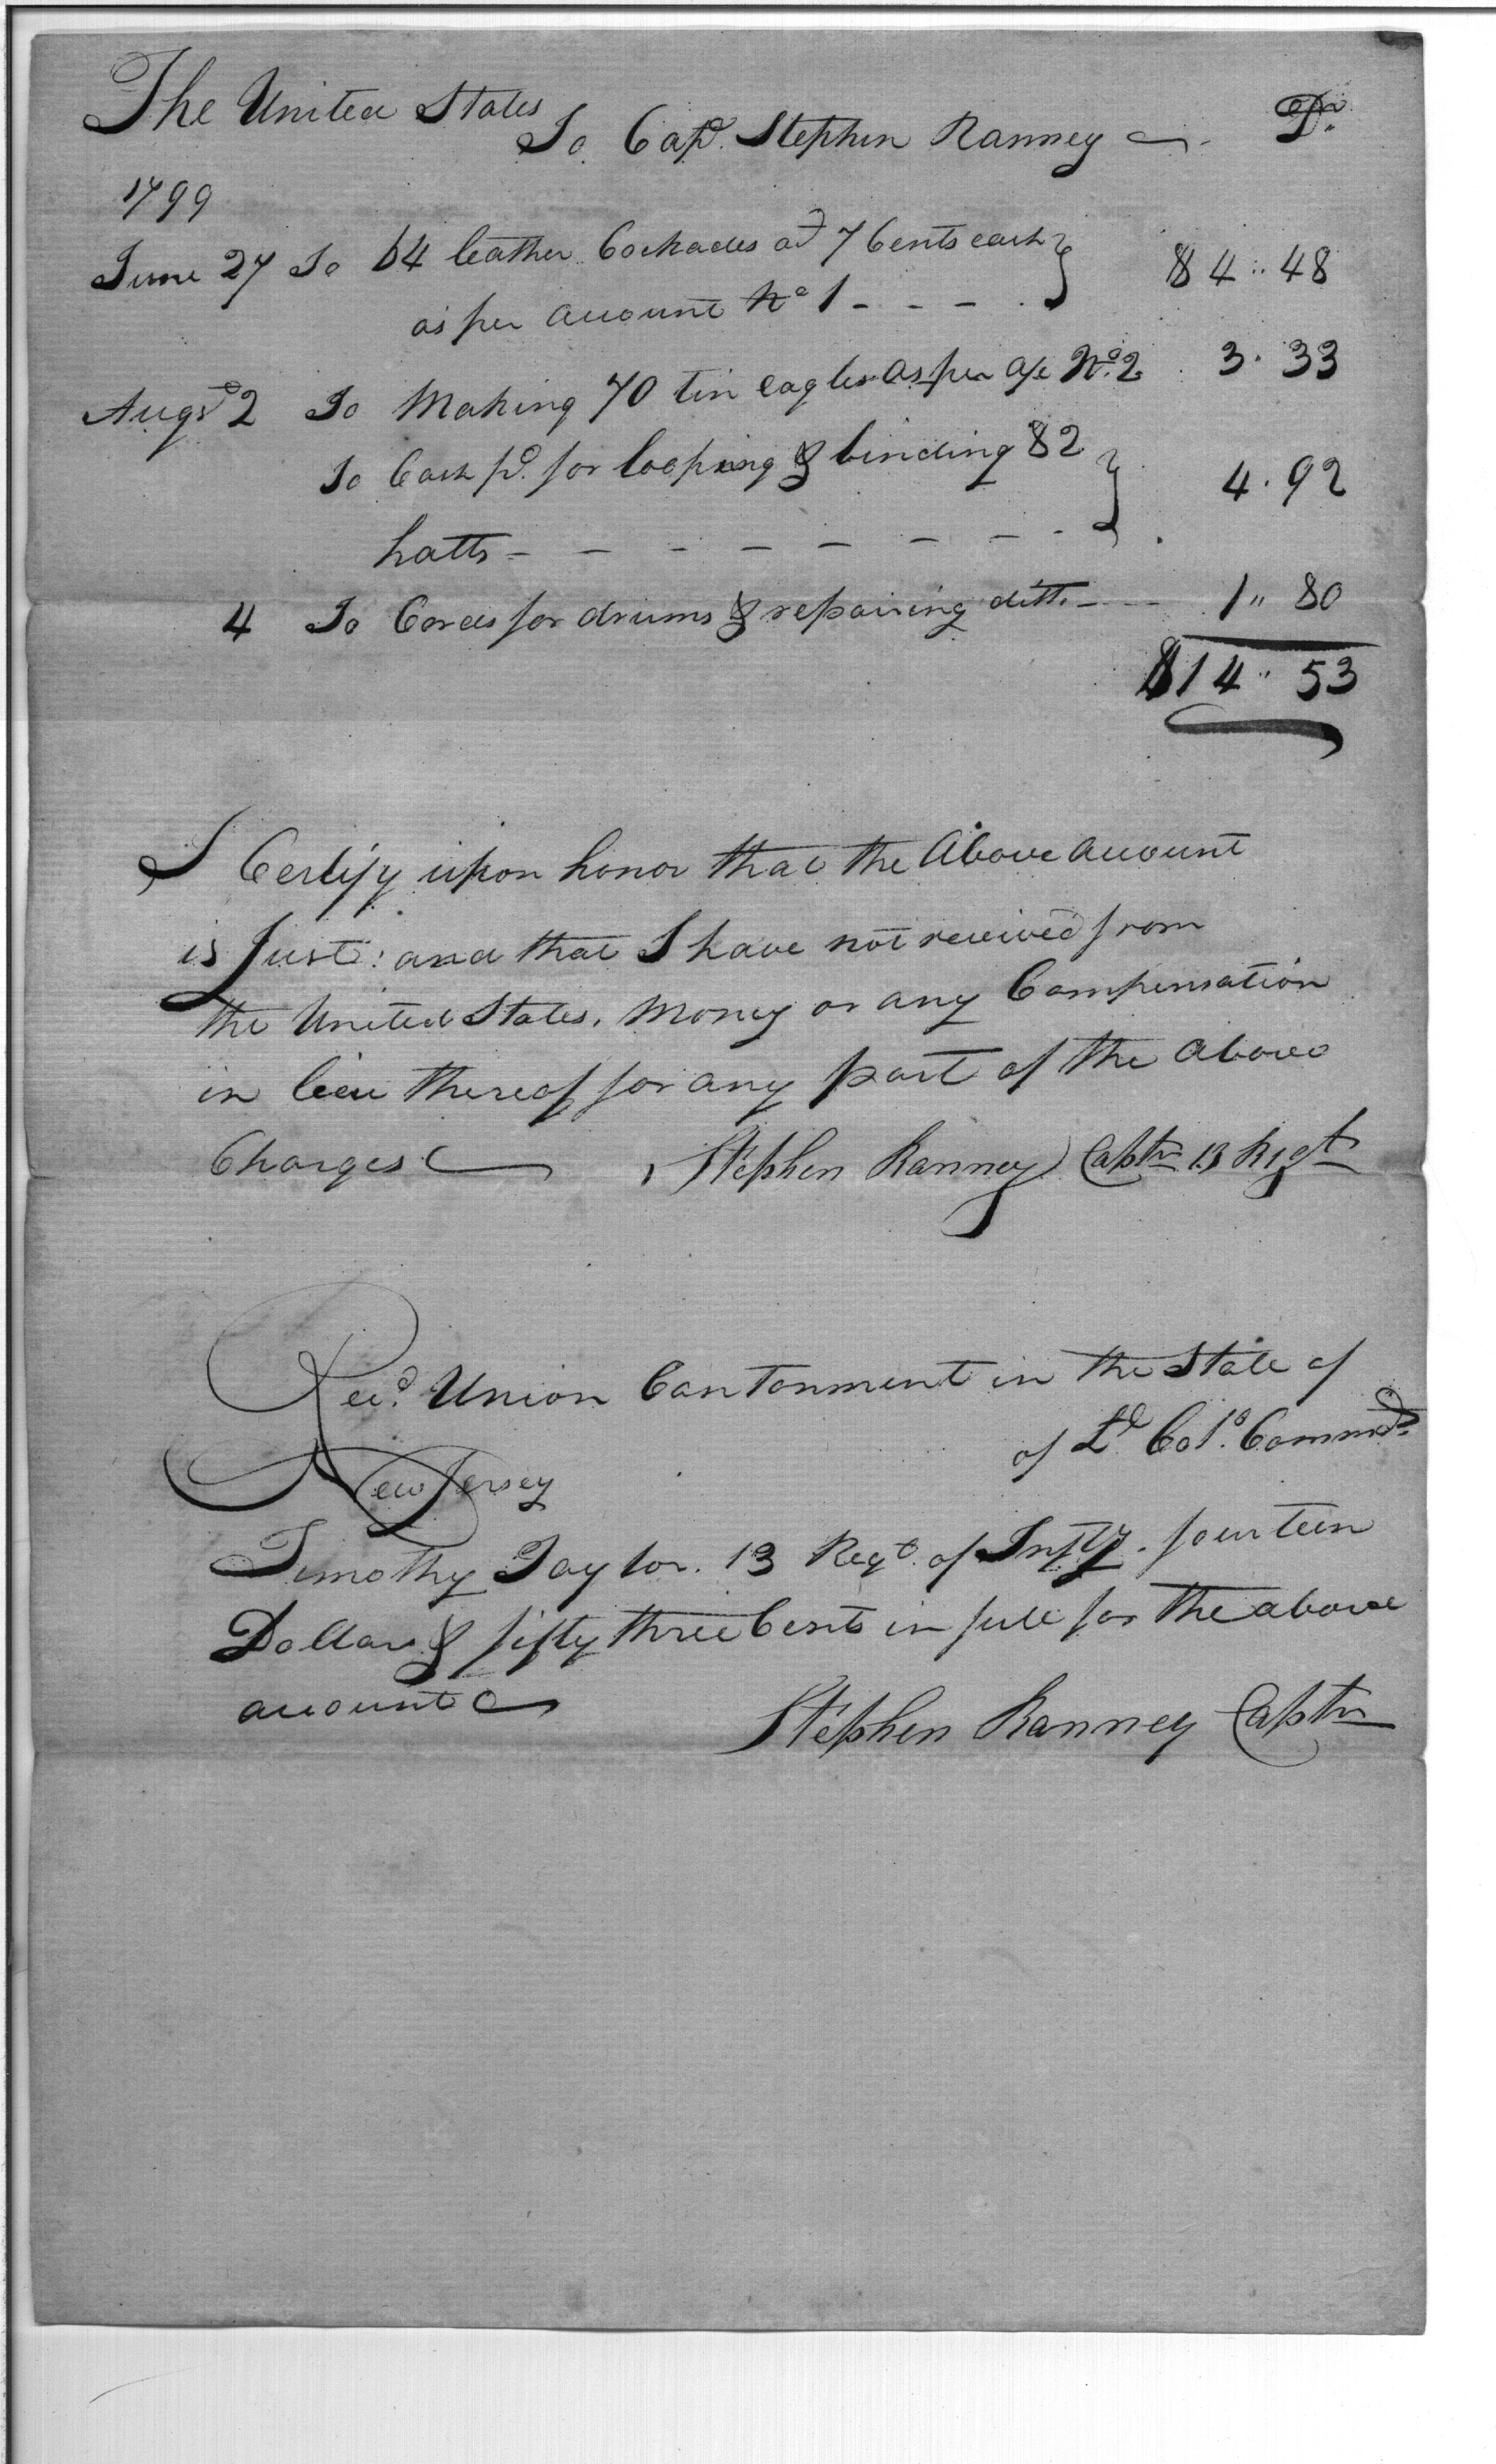 The United States
To Capt. Stephen Ranney Dr.
1799
June 27 To 64 leather Cockades at 7 Cents each } $ 4 : 48
as per account No 1 - - - .
Augst 2 To Making 70 tin eagles as per a/c No. 2 . 3 . 33
To Cash pd. for looping & binding 82 } 4 . 92
hatts - - - - - - - -
4 To Cords for drums & repairing ditto - - 1 " 80
$ 14 " 53
I Certify upon honor that the Above account
is Just: and that I have not received from
the United States, Money or any Compensation
in lieu thereof for any part of the above
Charges Stephen Ranney Captn 13 Regt
Recd. Union Cantonment in the State of
New Jersey of Lt Colo. Commdt
Timothy Taylor. 13 Regt. of Infty. fourteen
Dollars & fifty three Cents in full for the above
account Stephen Ranney Captn